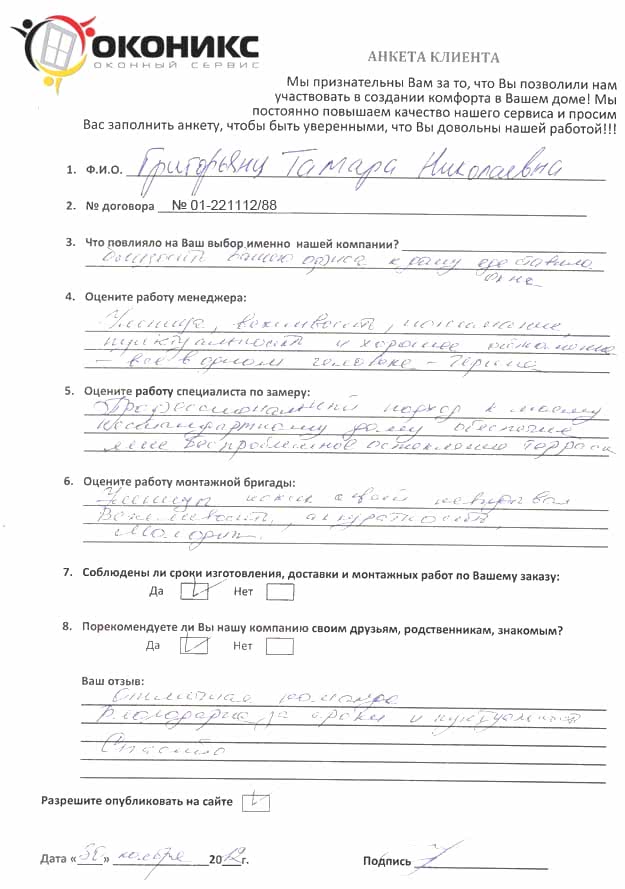 ОКОНИКС
ОКОННЫЙ СЕРВИС
АНКЕТА КЛИЕНТА
Мы признательны Вам за то, что Вы позволили нам
участвовать в создании комфорта в Вашем доме! Мы
постоянно повышаем качество нашего сервиса и просим
Вас заполнить анкету, чтобы быть уверенными, что Вы довольны нашей работой!!!
1. Ф.И.О. Григорьянц Тамара Николаевна
2. № договора № 01-221112/88
3. Что повлияло на Ваш выбор именно нашей компании?
близость вашего офиса к дому
окна
4. Оцените работу менеджера:
Умница, вежливость, понимание,
пунктуальность и хорошее
- все в одном человеке -
5. Оцените работу специалиста по замеру:
Профессиональный подход к моему
нестандартному дому
мне беспроблемное остекление террасы
6. Оцените работу монтажной бригады:
Умницы
Вежливость, аккуратность,
Молодцы.
7. Соблюдены ли сроки изготовления, доставки и монтажных работ по Вашему заказу:
Да Нет
8. Порекомендуете ли Вы нашу компанию своим друзьям, родственникам, знакомым?
Да Нет
Ваш отзыв:
Отличная команда
Благодарна за сроки и пунктуальность
Спасибо
Разрешите опубликовать на сайте
Дата « » ноября 2012г. Подпись